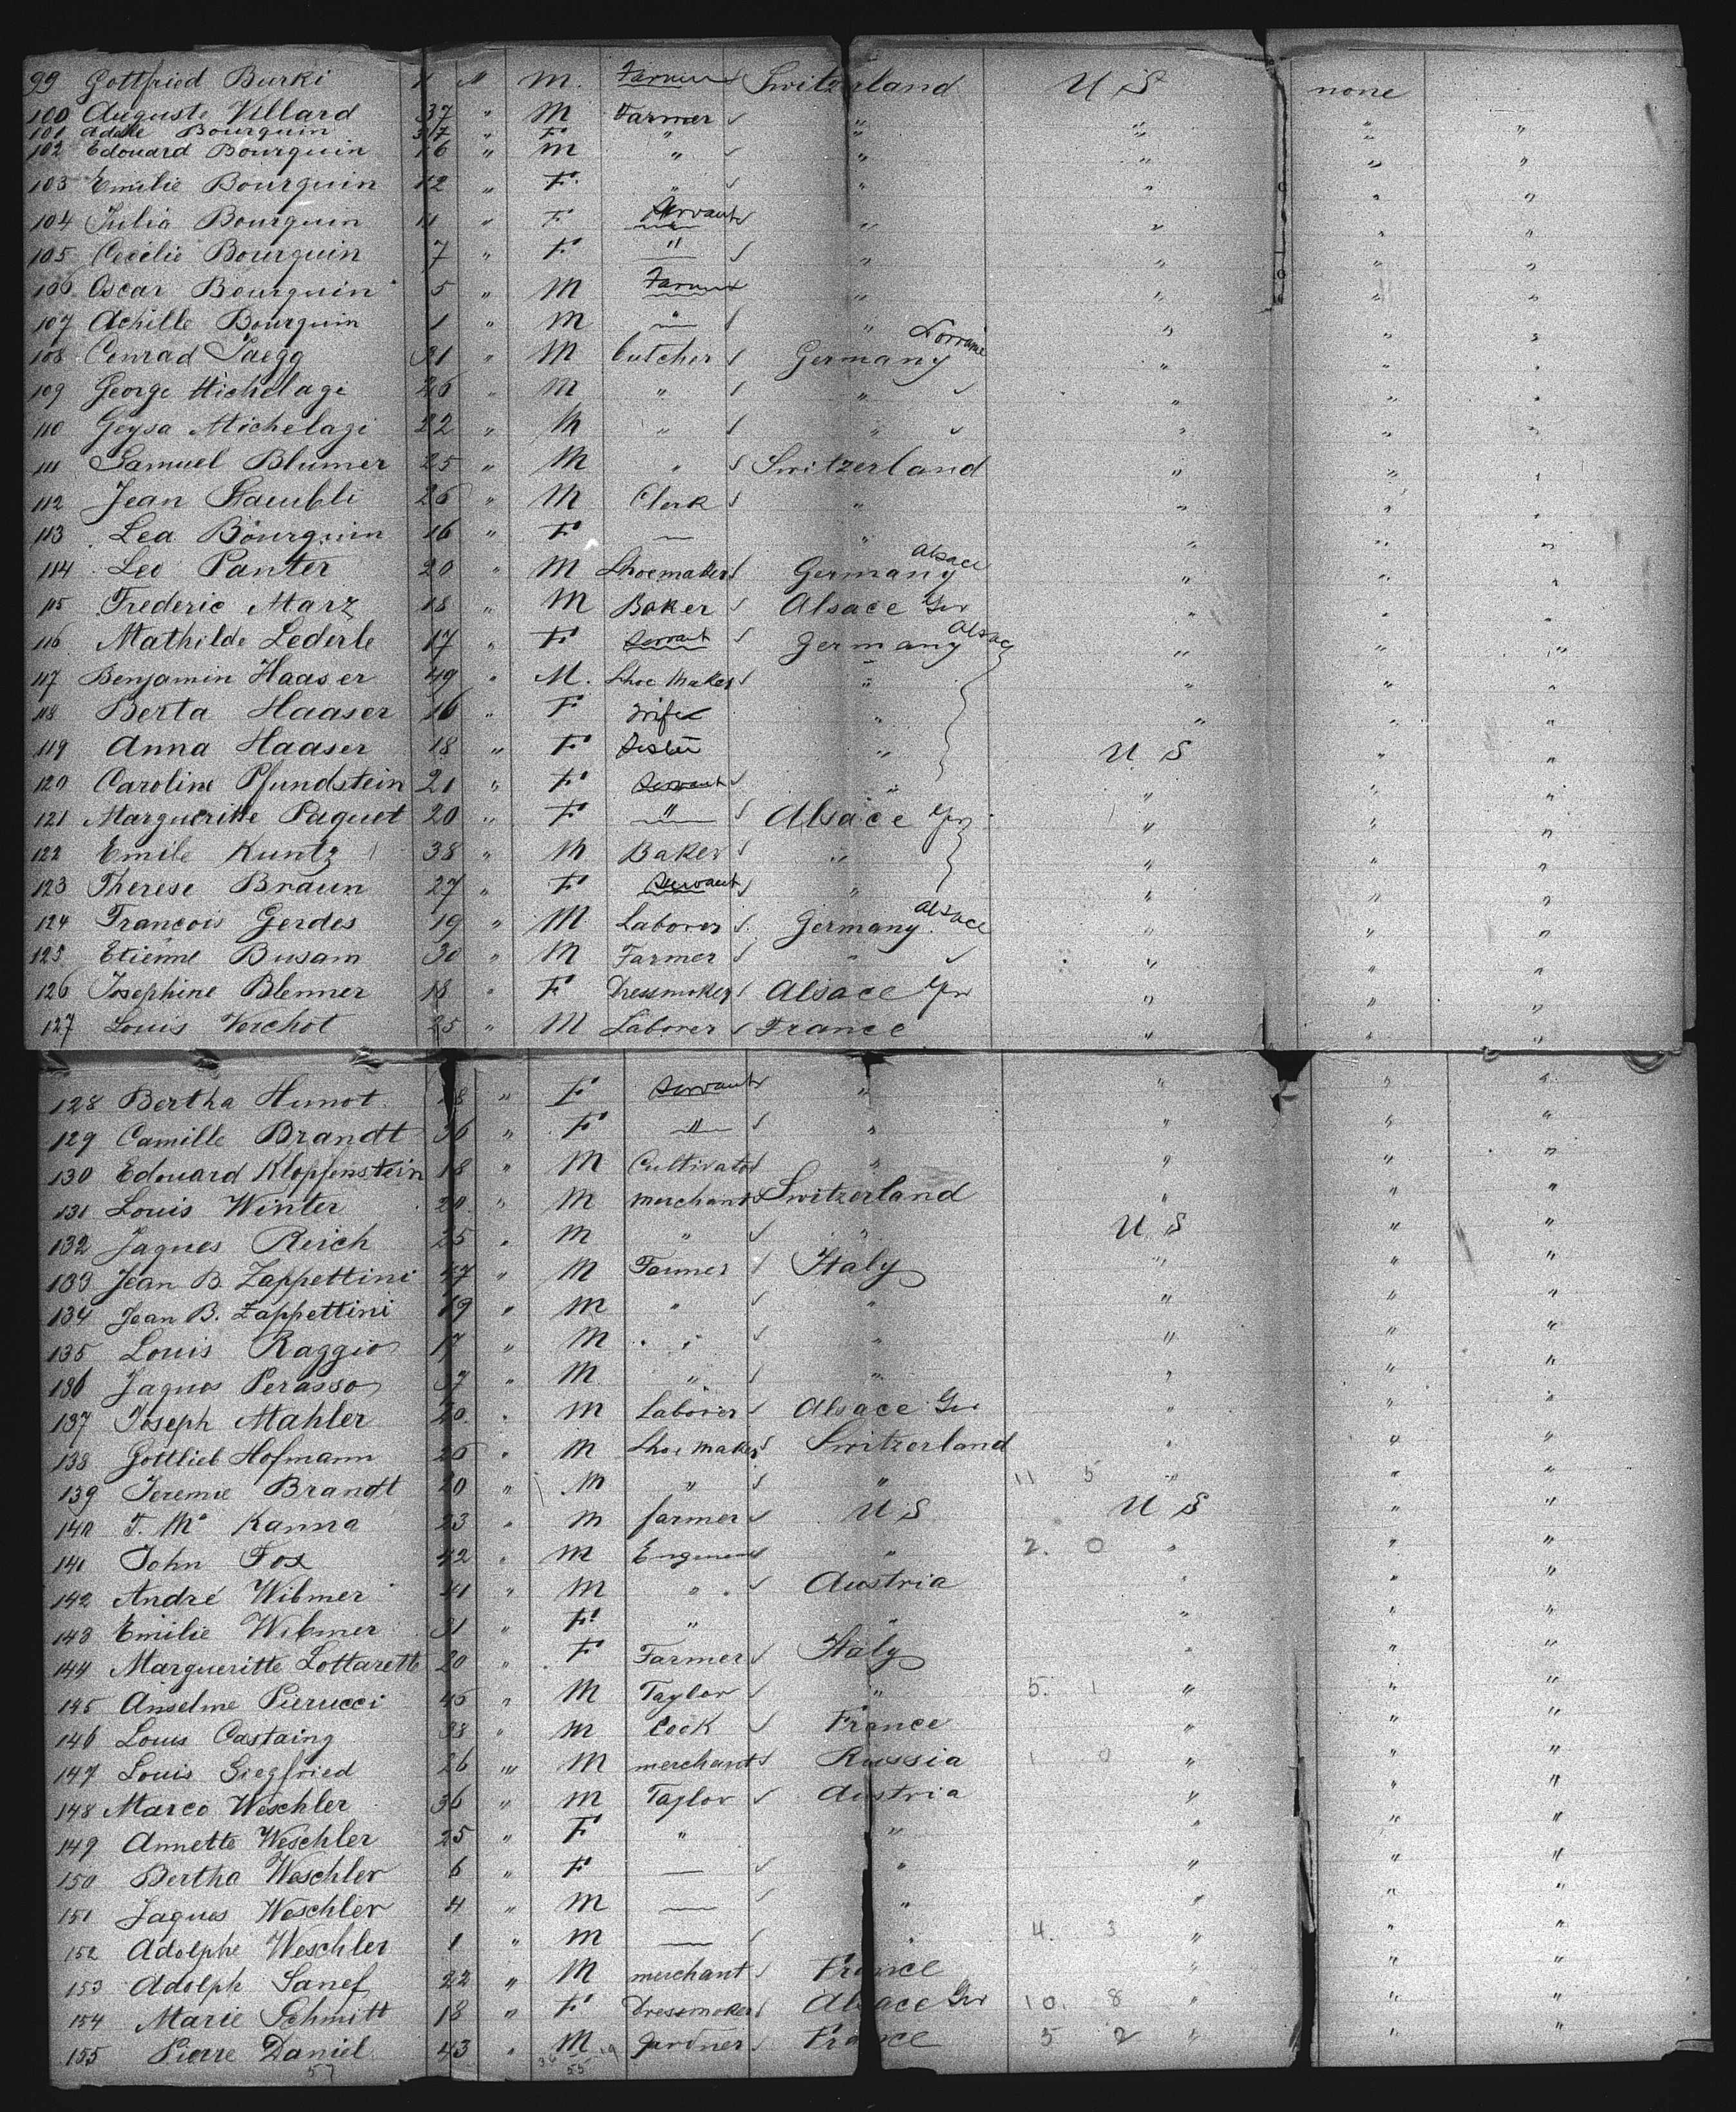 99 Gottfried Burki M. Farmer Switzerland U S none
100 Auguste Villard 37 " M Farmer " " " "
101 Adele Bourquin 37 " F " " " " "
102 Edouard Bourquin 16 " M " " " " "
103 Emilie Bourquin 12 " F. " " " " "
104 Julia Bourquin 11 " F Servant " " " "
105 Cecélie Bourquin 7 " F. " " " " "
106 Oscar Bourquin 5 " M Farmer " " " "
107 Achille Bourquin 1 " M " " " " "
108 Conrad Jaegg 31 " M butcher Germany Lorraine " " "
109 George Michelage 26 " M " " " " "
110 Geysa Michelagi 22 " M " " " " "
111 Samuel Blumer 25 " M " Switzerland " " "
112 Jean Staubli 26 " M Clerk " " " "
113 Lea Bourquin 16 " F — " " " "
114 Leo Panter 20 " M Shoemaker Germany Alsace " " "
115 Frederic Marz 18 " M Baker Alsace Ger " " "
116 Mathilde Lederle 17 " F Servant Germany Alsac " " "
117 Benjamin Haaser 49 " M. Shoe Maker " " " "
118 Berta Haaser 16 " F Wife " " " "
119 Anna Haaser 18 " F Sister " U S " "
120 Caroline Pfundstein 21 " F Servant " " " "
121 Margueritte Paquet 20 " F " Alsace Ger " " "
122 Emile Kuntz 38 " M Baker " " " "
123 Therese Braun 27 " F Servant " " " "
124 Francois Gerdes 19 " M Laborer Germany. Alsace " " "
125 Etienne Busam 30 " M Farmer " " " "
126 Josephine Blenner 18 " F Dressmaker Alsace Ger " " "
127 Louis Verchot 25 " M Laborer France " " "
128 Bertha Hunot 18 " F Servant " " " "
129 Camille Brandt 36 " F " " " " "
130 Edouard Klopfenstein 18 " M Cultivator " " " "
131 Louis Winter 20 " M merchant Switzerland " " "
132 Jaques Reich 25 " M " " U S " "
133 Jean B. Zappettini 47 " M Farmer Italy " " "
134 Jean B. Zappettini 19 " M " " " " "
135 Louis Raggio 17 " M " " " " "
136 Jaques Perasso 37 " M " " " " "
137 Joseph Mahler 20 " M Laborer Alsace Ger " " "
138 Gottlieb Hofmann 26 " M Shoe maker Switzerland " " "
139 Jeremie Brandt 20 " M " " 11 5 " " "
140 T. Mc Kanna 23 " M farmer U S U S " "
141 John Fox 42 " M Engineer " 2. 0 " " "
142 André Wibmer 41 " M " Austria " " "
143 Emilie Wibmer 31 " F " " " " "
144 Margueritte Lottarette 20 " F Farmer Italy " " "
145 Anselme Pierucci 45 " M Taylor " 5. 1 " " "
146 Louis Castaing 38 " M Cook France " " "
147 Louis Siegfried 26 " M merchant Russia 1 0 " " "
148 Marco Weschler 36 " M Taylor Austria " " "
149 Annette Weschler 25 " F " " " " "
150 Bertha Weschler 6 " F — " " " "
151 Jaques Weschler 4 " M — " " " "
152 Adolphe Weschler 1 " M — " 4. 3 " " "
153 Adolph Sanef 22 " M merchant France " " "
154 Marie Schmitt 18 " F Dressmaker Alsace Ger 10. 8 " " "
155 Pierre Daniel 43 " M Gardner France 5 2 " " "
57 36 55 19